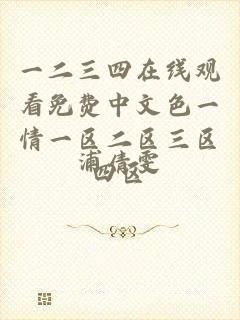 一二三四在线观
看免费中文色一
情一区二区三区
四区
浦倩雯